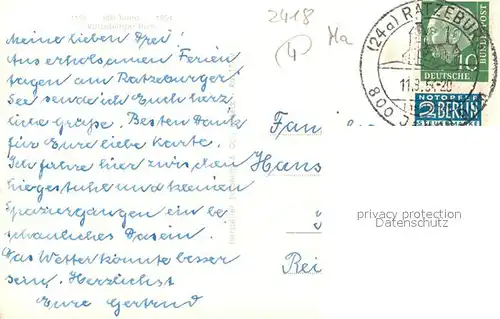 1154 800 Jahre 1954
Ratzeburger Dom
2418
4
Ma
(24a) RATZEBURG
11.9.54-20
800 J
10
DEUTSCHE
BUNDESPOST
NOTOPFER
2 BERLIN
STEUERMARKE
Meine lieben Drei!
Aus erholsamen Ferien
tagen am Ratzeburger
See sende ich Euch herz
liche Grüße. Besten Dank
für Eure liebe Karte.
Ich fahre hier zwischen
Liegestuhl und kleinen
Spaziergängen ein be
schauliches Dasein.
Das Wetter könnte besser
sein. Herzlichst
Eure Gertrud
Fam
Hans
Rei
privacy protection
Datenschutz